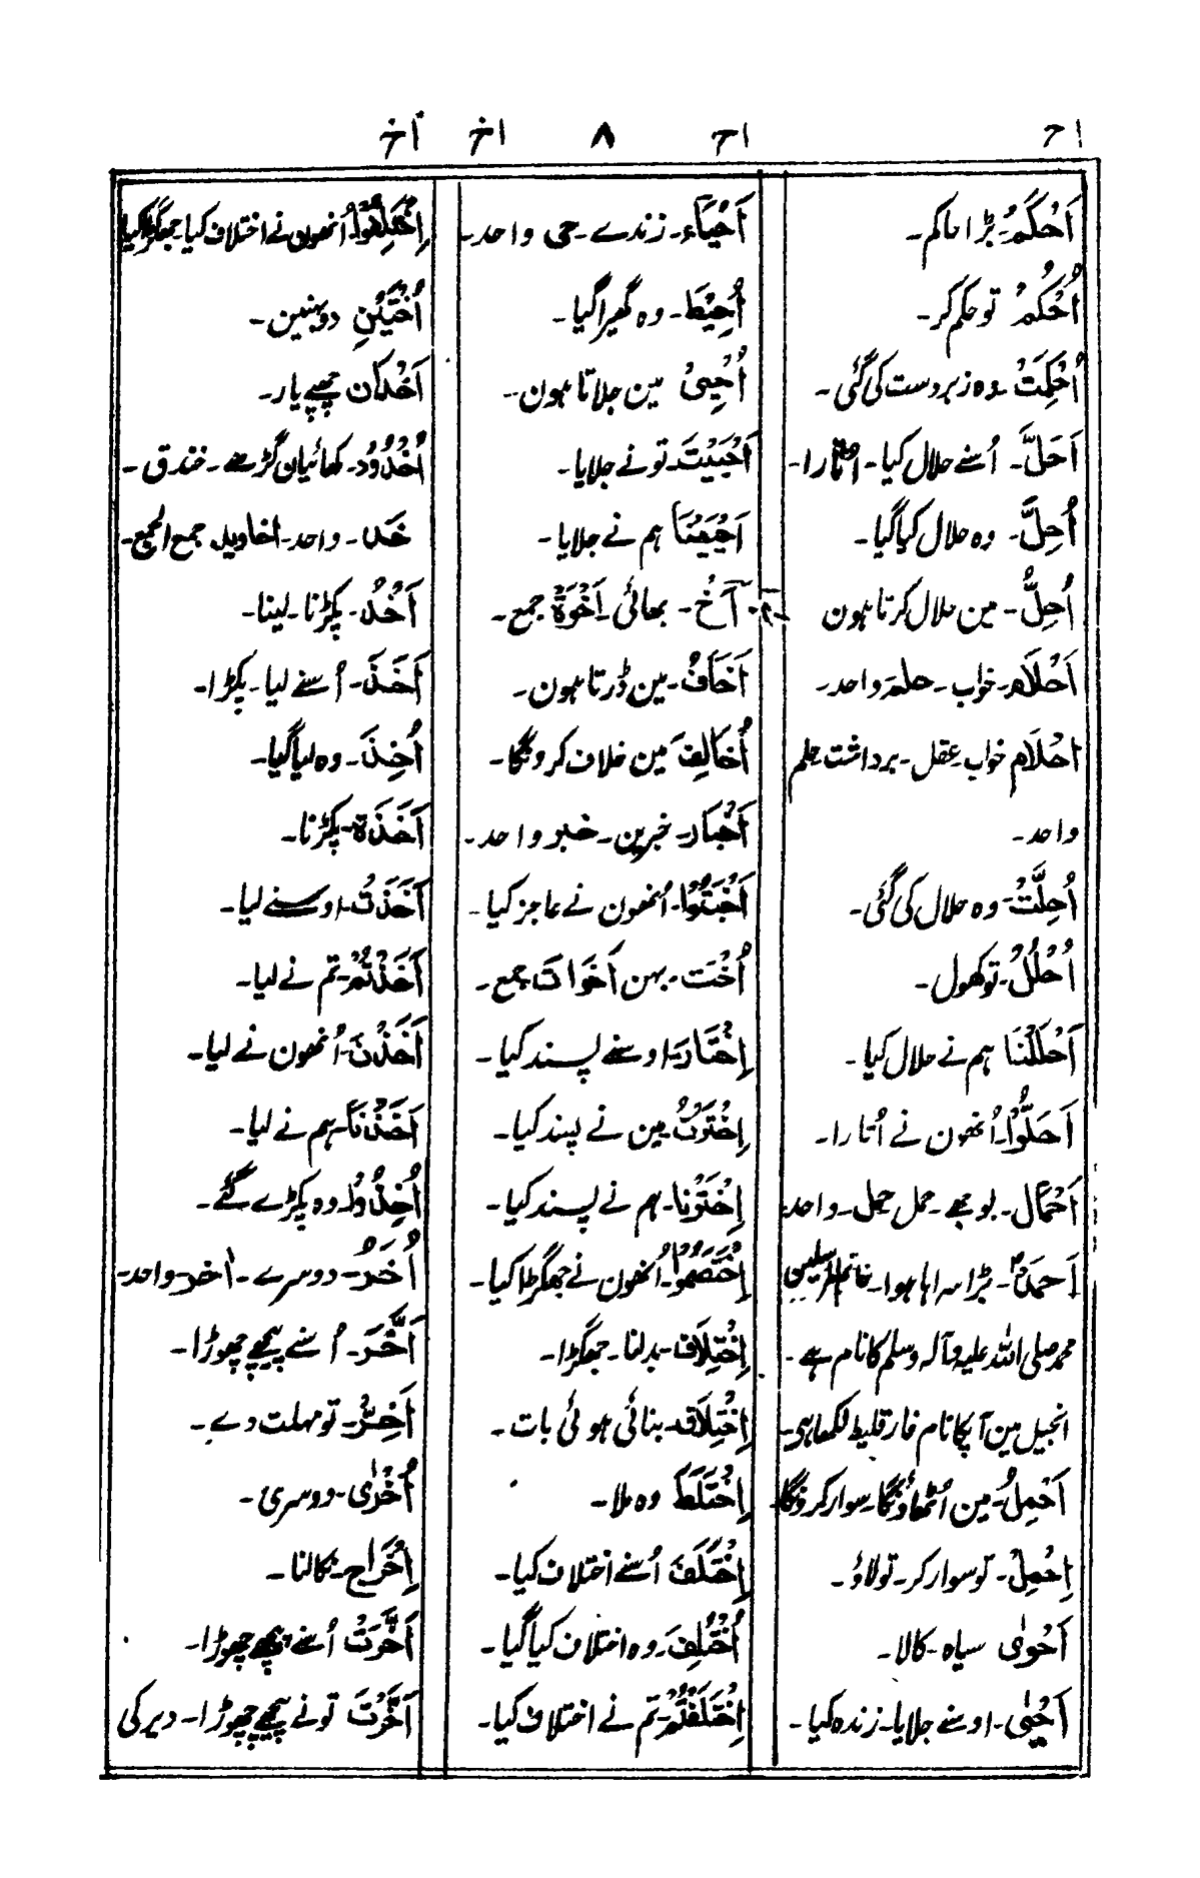 اح اح ٨ اخ اخ
اَحْکَمُ۔ بڑا حاکم۔
اُحْکُمْ تو حکم کر۔
اُحْکِمَتْ۔ وہ زبردست کی گئی۔
اَحَلَّ۔ اُسنے حلال کیا۔ اُتارا۔
اُحِلَّ۔ وہ حلال کیا گیا۔
اُحِلُّ۔ مین حلال کرتا ہون
اَحْلَام۔ خواب۔ حلم۔ واحد۔
احْلَام خواب۔ عقل۔ برداشت حلم
واحد۔
اُحِلَّتْ۔ وہ حلال کی گئی۔
اُحْلُلْ۔ تو کھول۔
اَحْلَلْنَا ہم نے حلال کیا۔
اَحَلُّوْا۔ اُنھون نے اُتارا۔
اَحْمَال۔ بوجھے۔ حمل حمل۔ واحد۔
اَحمَدؐ۔ بڑا سراہا ہوا۔ خاتم المرسلین
محمد صلی اللہ علیہ وآلہ وسلم کا نام ہے۔
انجیل مین آپکا نام فارقلیط لکھا ہی۔
اَحْمِلُ۔ مین اُٹھاؤنگا۔ سوار کرونگا۔
اِحْمِلْ۔ تو سوار کر۔ تو لاؤ۔
اَحْوٰی سیاہ۔ کالا۔
اَحْیٰی۔ اوسنے جلایا۔ زندہ کیا۔
اَحْیَآء۔ زندے۔ حی واحد۔
اُحِیْطَ۔ وہ گھیرا گیا۔
اُحْیِیْ مین جلاتا ہون۔
اَحْیَیْتَ۔ تونے جلایا۔
اَحْیَیْنَا ہم نے جلایا۔
آخُ۔ بھائی۔ اِخْوَۃٌ جمع۔
اَخَافُ۔ مین ڈرتا ہون۔
اُخَالِفَ مین خلاف کرونگا۔
اَخْبَار۔ خبرین۔ خبر واحد۔
اَخْبَتُوْا۔ اُنھون نے عاجز کیا۔
اُخْت۔ بہن اَخَوَات جمع۔
اِخْتَارَ۔ اوسنے پسند کیا۔
اِخْتَرْتُ۔ مین نے پسند کیا۔
اِخْتَرْنا۔ ہم نے پسند کیا۔
اِخْتَصَمُوْا۔ اُنھون نے جھگڑا کیا۔
اِخْتِلَاف۔ بدلنا۔ جھگڑا۔
اِخْتِلَاق۔ بنائی ہوئی بات۔
اِخْتَلَطَ وہ ملا۔
اِخْتَلَفَ اُسنے اختلاف کیا۔
اُخْتُلِفَ۔ وہ اختلاف کیا گیا۔
اِخْتَلَفْتُمْ۔ تم نے اختلاف کیا۔
اِخْتَلَفُوْا۔ اُنھون نے اختلاف کیا۔ جھگڑا کیا
اُخْتَیْنِ دو بہنین۔
اَخْدَان چھپے یار۔
اُخْدُوْد۔ کھائیان گڑھے۔ خندق۔
خد۔ واحد۔ اخادید جمع الجمع۔
اَخْذُ۔ پکڑنا۔ لینا۔
اَخَذَ۔ اُسنے لیا۔ پکڑا۔
اُخِذَ۔ وہ لیا گیا۔
اَخْذَۃ۔ پکڑنا۔
اَخَذَتْ۔ اوسنے لیا۔
اَخَذْتُمْ۔ تم نے لیا۔
اَخَذْنَ۔ اُنھون نے لیا۔
اَخَذْنَا۔ ہم نے لیا۔
اُخِذُوْا۔ وہ پکڑے گئے۔
اُخَرُ۔ دوسرے۔ اٰخر۔ واحد۔
اَخَّرَ۔ اُسنے پیچھے چھوڑا۔
اَخِّرْ۔ تو مہلت دے۔
اُخْرٰی۔ دوسری۔
اِخْرَاج۔ نکالنا۔
اَخَّرَتْ اُسنے پیچھے چھوڑا۔
اَخَّرْتَ تونے پیچھے چھوڑا۔ دیر کی